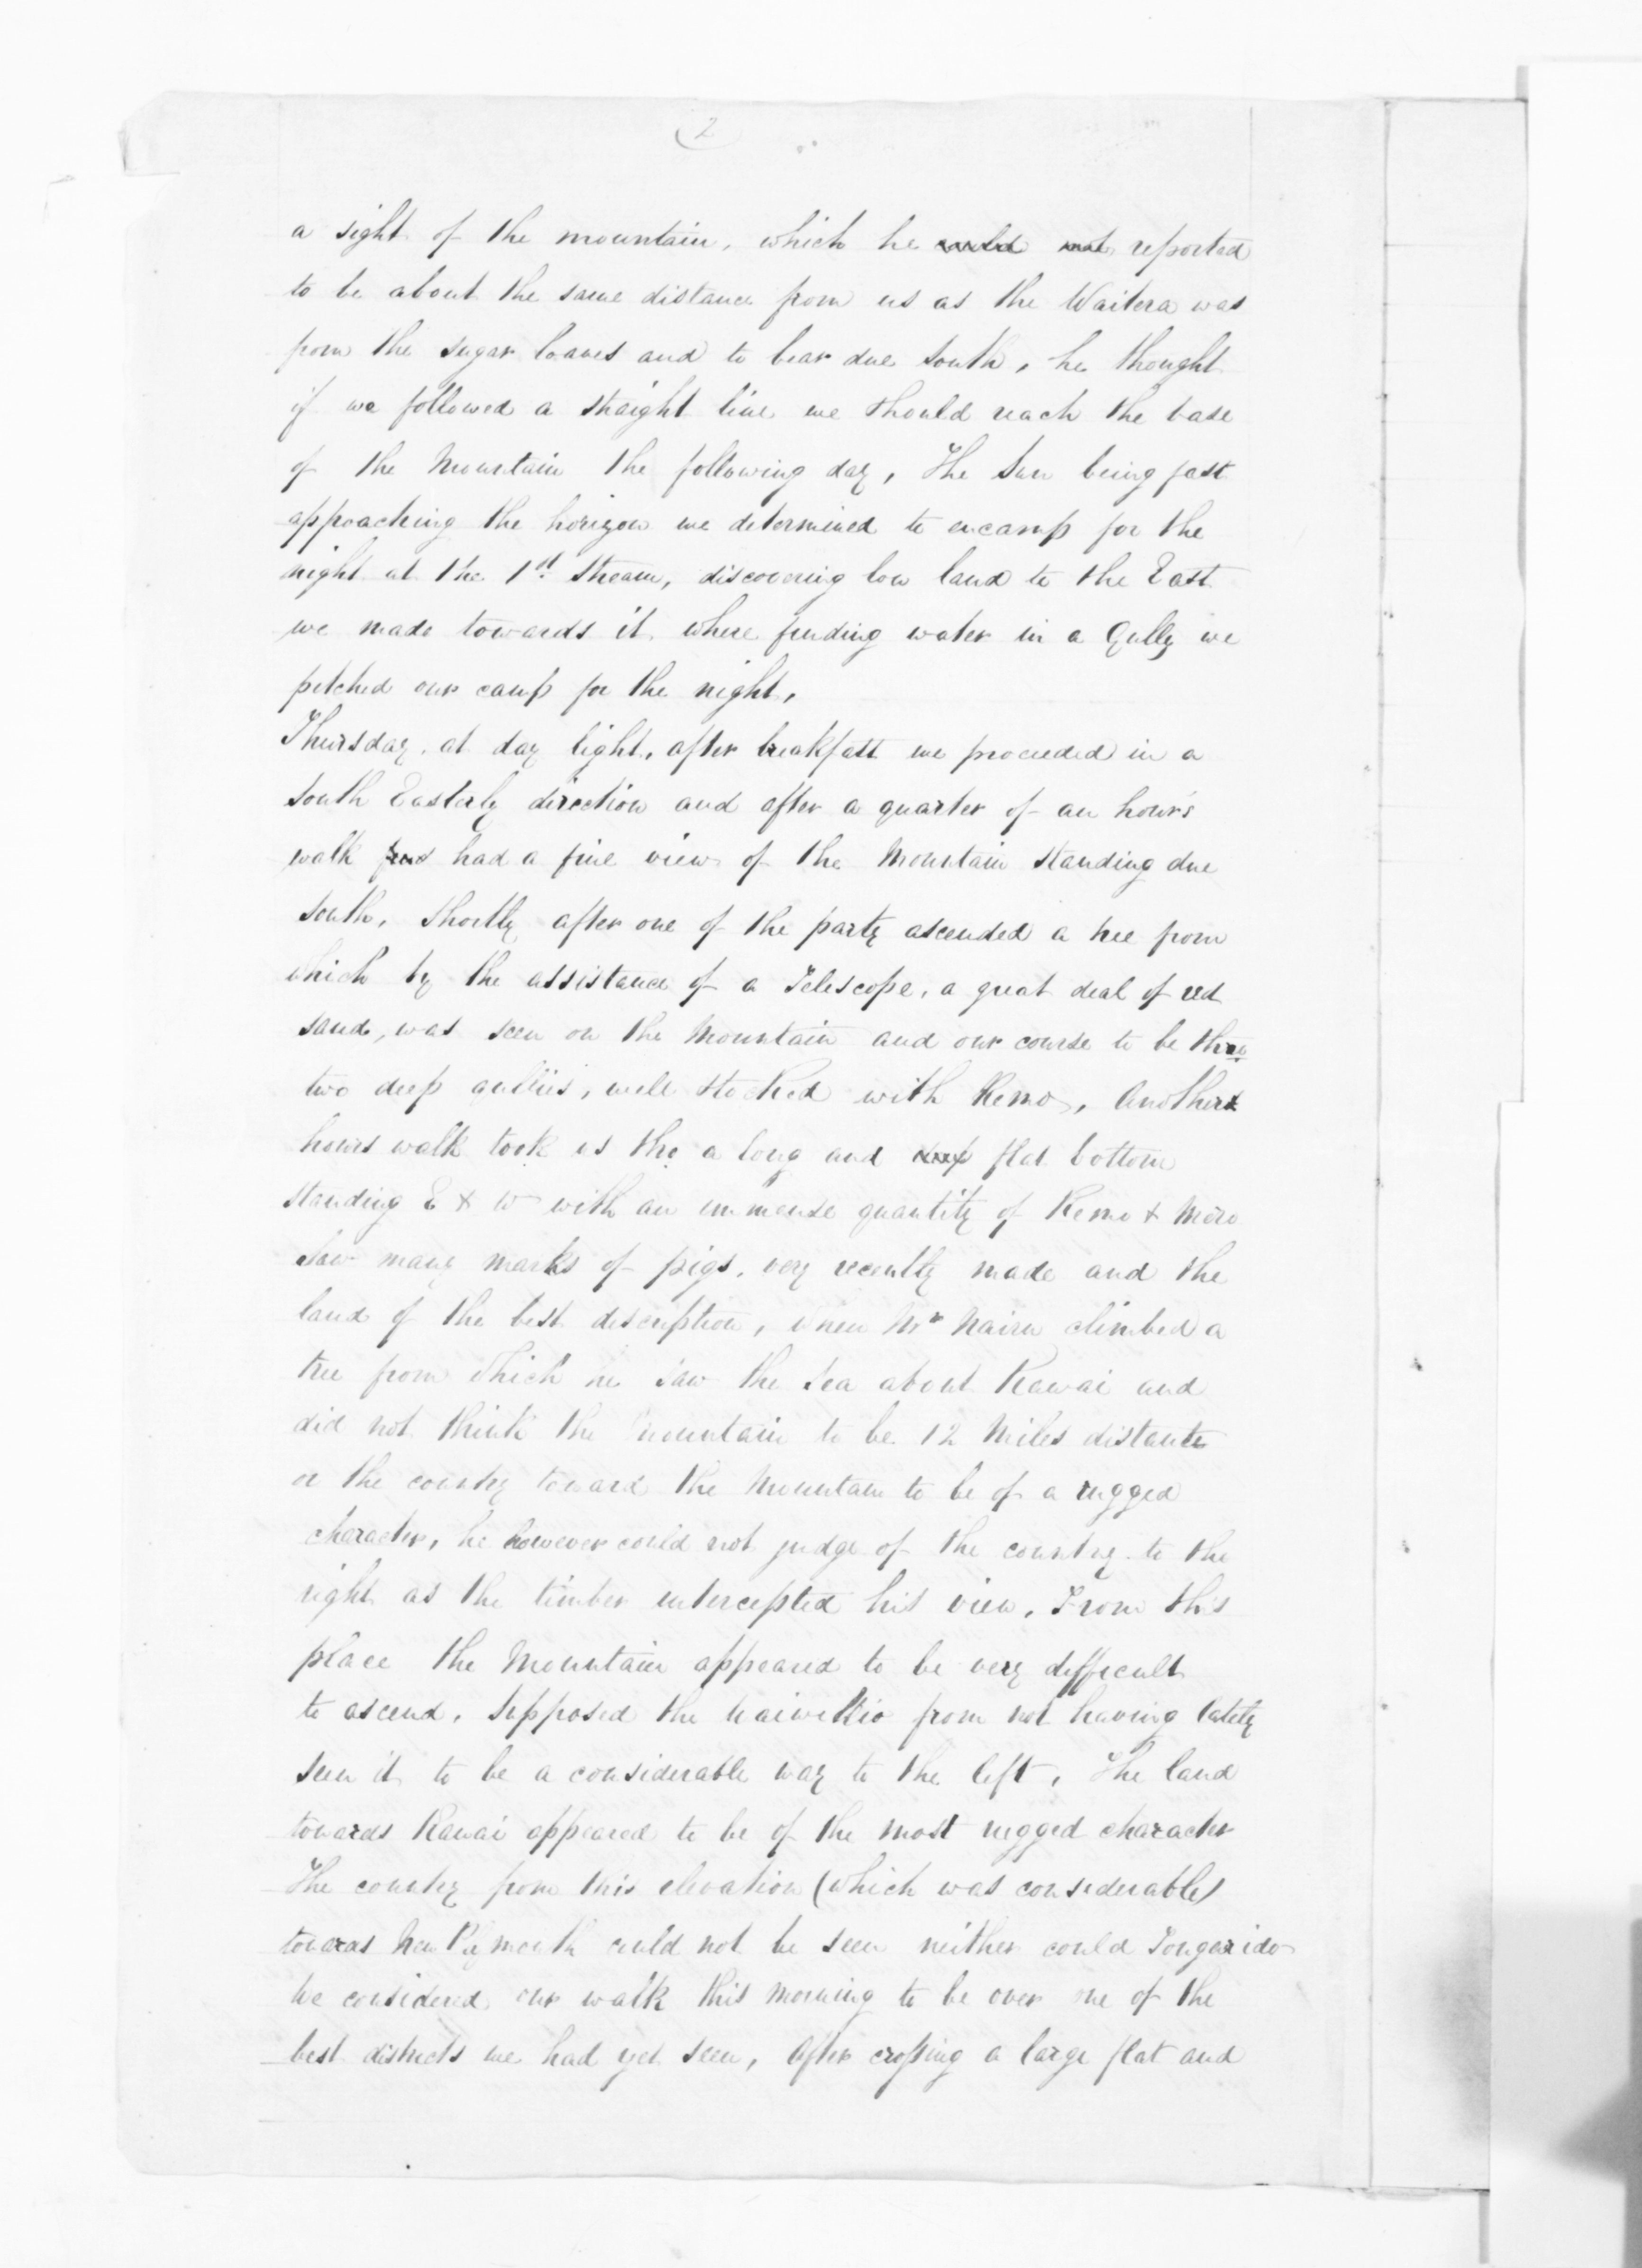 (2
a sight of the mountain, which he could not reported
to be about the same distance from us as the Waitera was
from the sugar loaves and to bear due South, he thought
if we followed a straight line we should reach the base
of the Mountain the following day, The Sun being fast
approaching the horizon we determined to encamp for the
night at the 1st. Stream, discovering low land to the East
we made towards it where finding water in a Gully we
pitched our camp for the night,
Thursday, at day light, after breakfast we proceeded in a
South Easterly direction and after a quarter of an hour's
walk had a fine view of the Mountain standing due
South, Shortly after one of the party ascended a tree from
which by the assistance of a Telescope, a great deal of red
sand, was seen on the Mountain and our course to be thro
two deep gullies, well stocked with Remo, Another
hours walk took us thro a long and flat bottom
standing E & W with an immense quantity of Remo & Miro
Saw many marks of pigs, very recently made and the
land of the best description, when Mr Nairn climbed a
tree from which he saw the Sea about Kawai and
did not think the Mountain to be 12 Miles distant
or the country toward the Mountain to be of a rugged
character, he however could not judge of the country to the
right as the timber intercepted his view, From this
place the Mountain appeared to be very difficult
to ascend, Supposed the from not having lately
seen it to be a considerable way to the left, The land
towards Kawai appeared to be of the most rugged character
The country from this elevation (which was considerable)
towards New Plymouth could not be seen neither could Tongarido
We considered our walk this morning to be over one of the
best districts we had yet seen, After crossing a large flat and